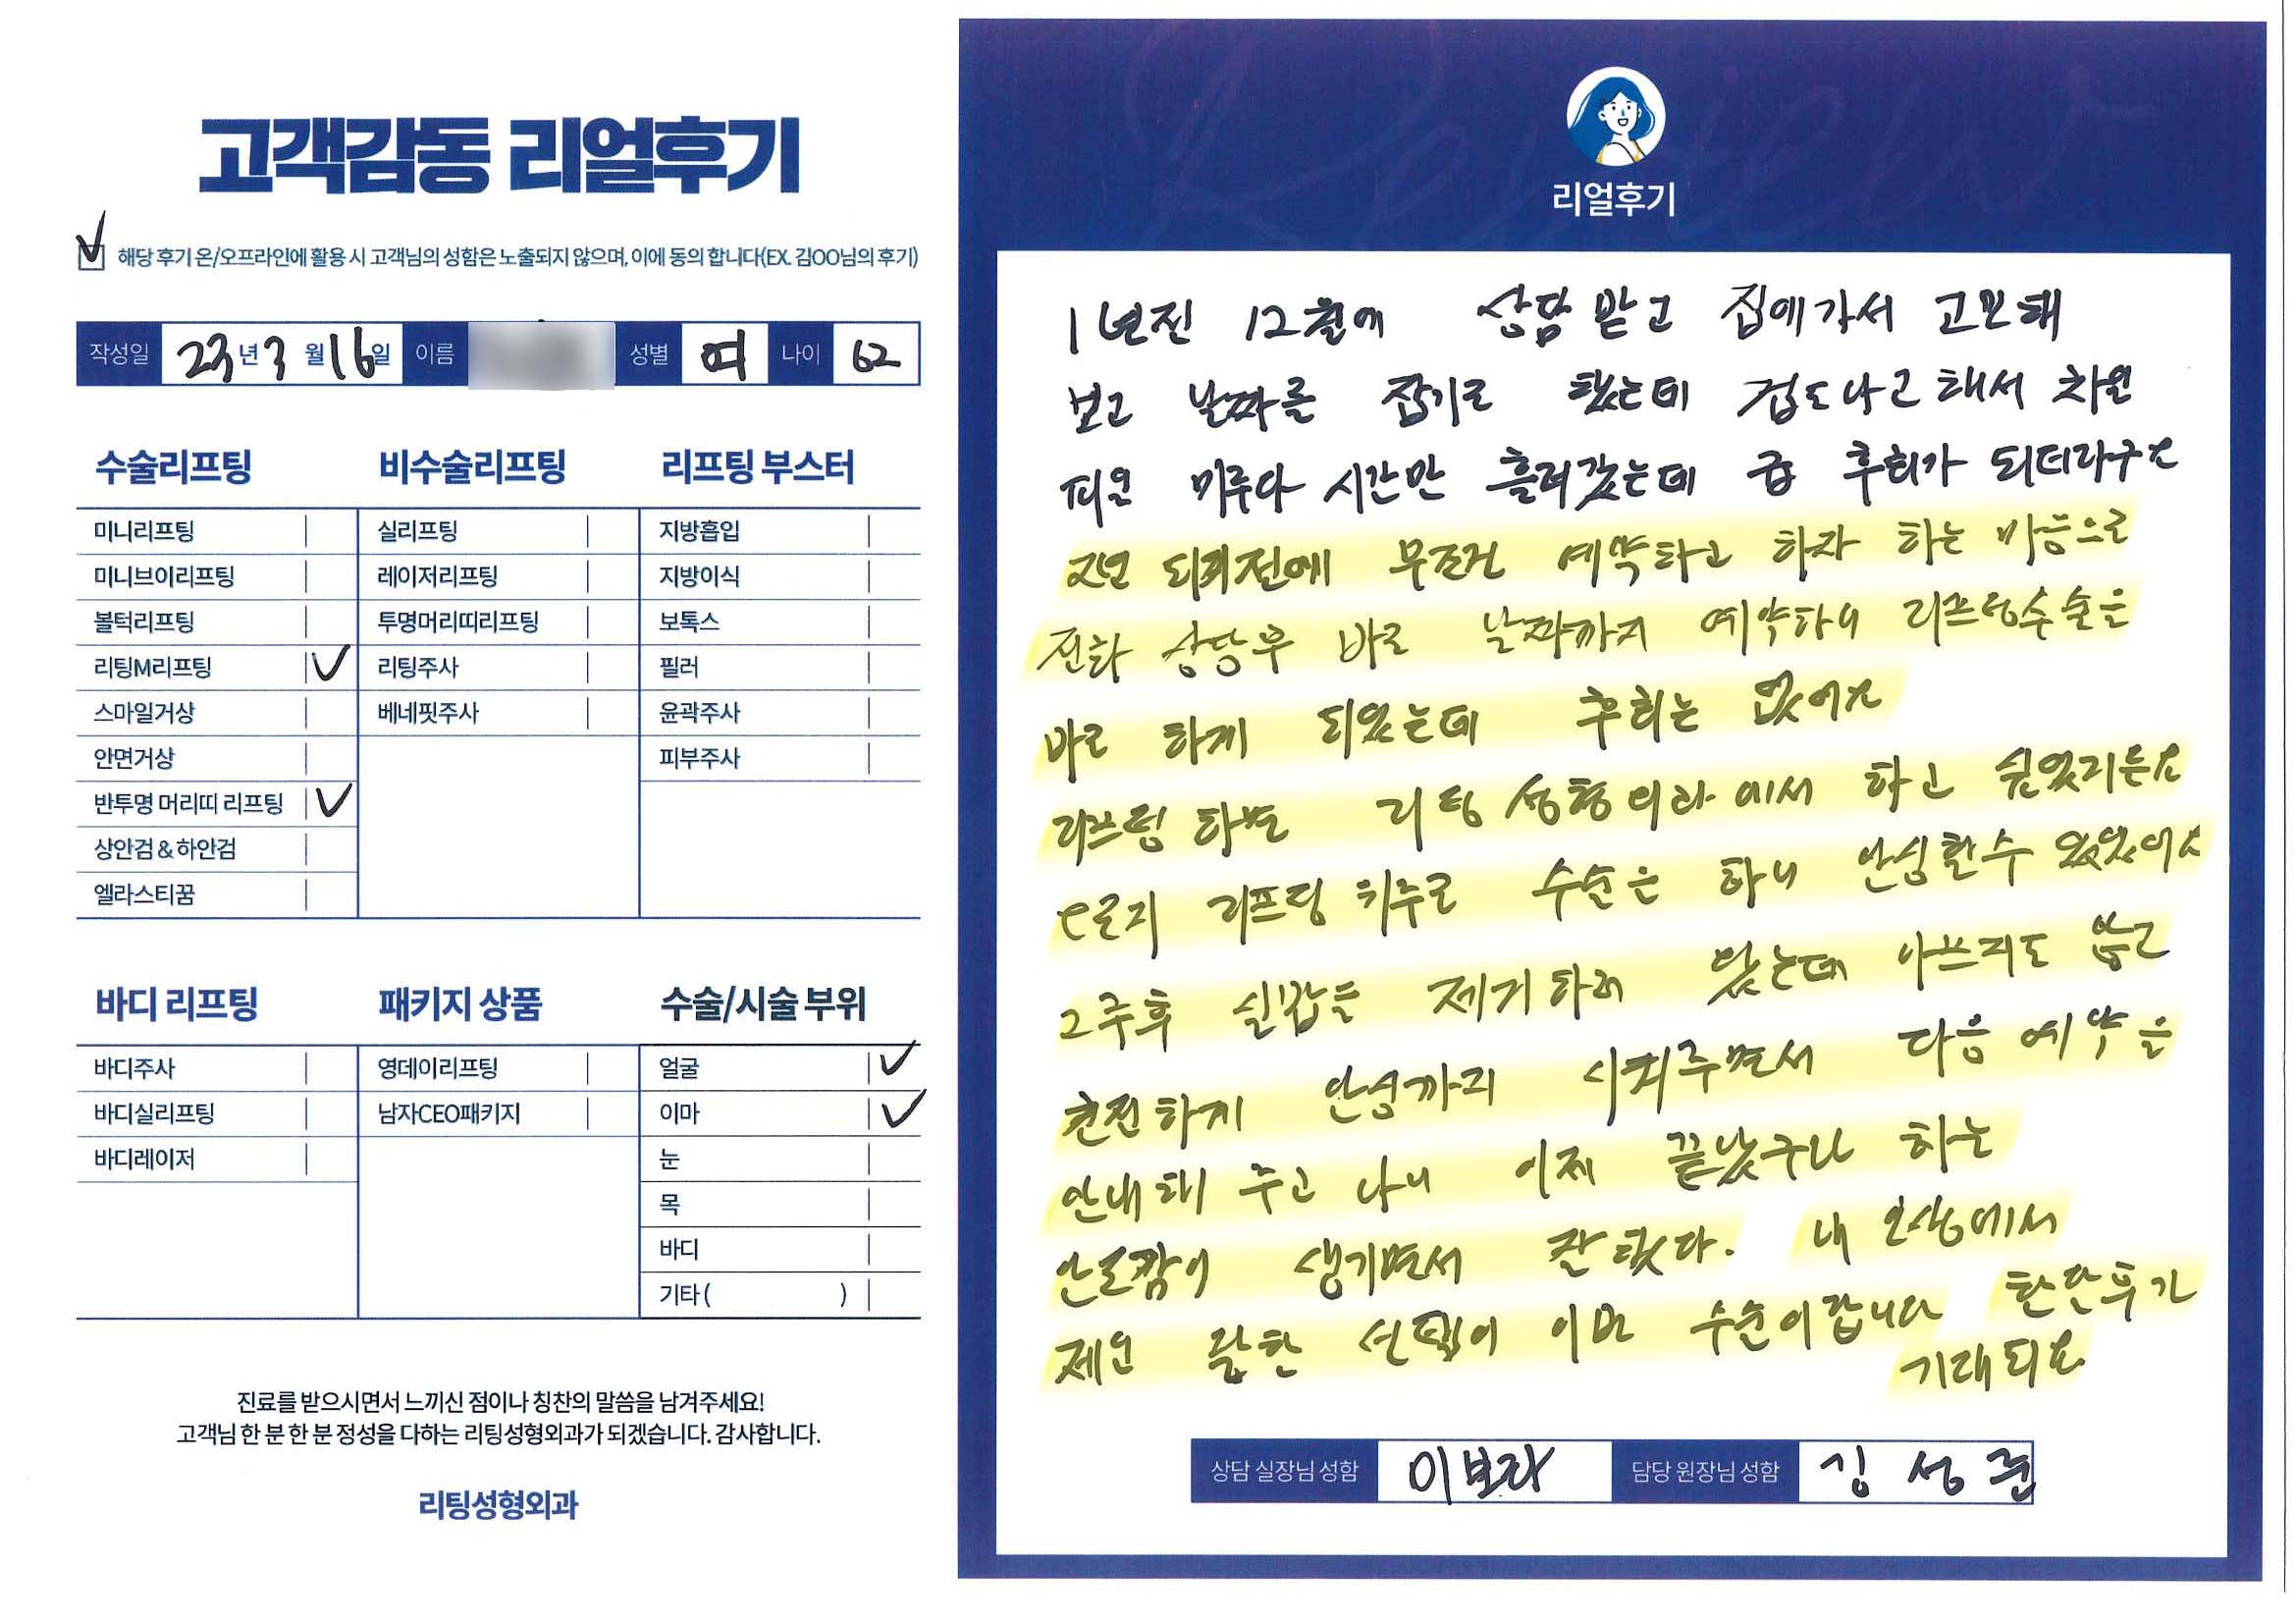 고객감동 리얼후기
해당 후기 온/오프라인에 활용 시 고객님의 성함은 노출되지 않으며, 이에 동의 합니다(EX. 김OO님의 후기)
작성일 23년 3월 16일 이름 성별 여 나이 62
수술리프팅
미니리프팅
미니브이리프팅
볼턱리프팅
리팅M리프팅
스마일거상
안면거상
반투명 머리띠 리프팅
상안검 & 하안검
엘라스티꿈
비수술리프팅
실리프팅
레이저리프팅
투명머리띠리프팅
리팅주사
베네핏주사
리프팅 부스터
지방흡입
지방이식
보톡스
필러
윤곽주사
피부주사
바디 리프팅
바디주사
바디실리프팅
바디레이저
패키지 상품
영데이리프팅
남자CEO패키지
수술/시술 부위
얼굴
이마
눈
목
바디
기타 ( )
진료를 받으시면서 느끼신 점이나 칭찬의 말씀을 남겨주세요!
고객님 한 분 한 분 정성을 다하는 리팅성형외과가 되겠습니다. 감사합니다.
리팅성형외과
Review
리얼후기
1년전 12월에 상담 받고 집에가서 고민해
보고 날짜를 잡기로 했는데 겁도나고 해서 차일
피일 미루다 시간만 흘러갔는데 급 후회가 되더라구요
2년 되기전에 무조건 예약하고 하자 하는 마음으로
전화 상담후 바로 날짜까지 예약하니 리프팅수술은
바로 하게 되었는데 후회는 없어요
리프팅 하면 리팅 성형외과에서 하고 싶었거든요
오로지 리프팅 위주로 수술은 하니 안심할수 있었어요
2주후 실밥을 제거하러 왔는데 아프지도 않고
안전하게 안심까지 시켜주면서 다음 예약을
안내해 주고 나니 이제 끝났구나 하는
안도감이 생기면서 잘했다. 내 인생에서
제일 잘한 선택이 이마 수술이랍니다 한달후가
기대되요
상담 실장님 성함 이보라 담당 원장님 성함 김성준